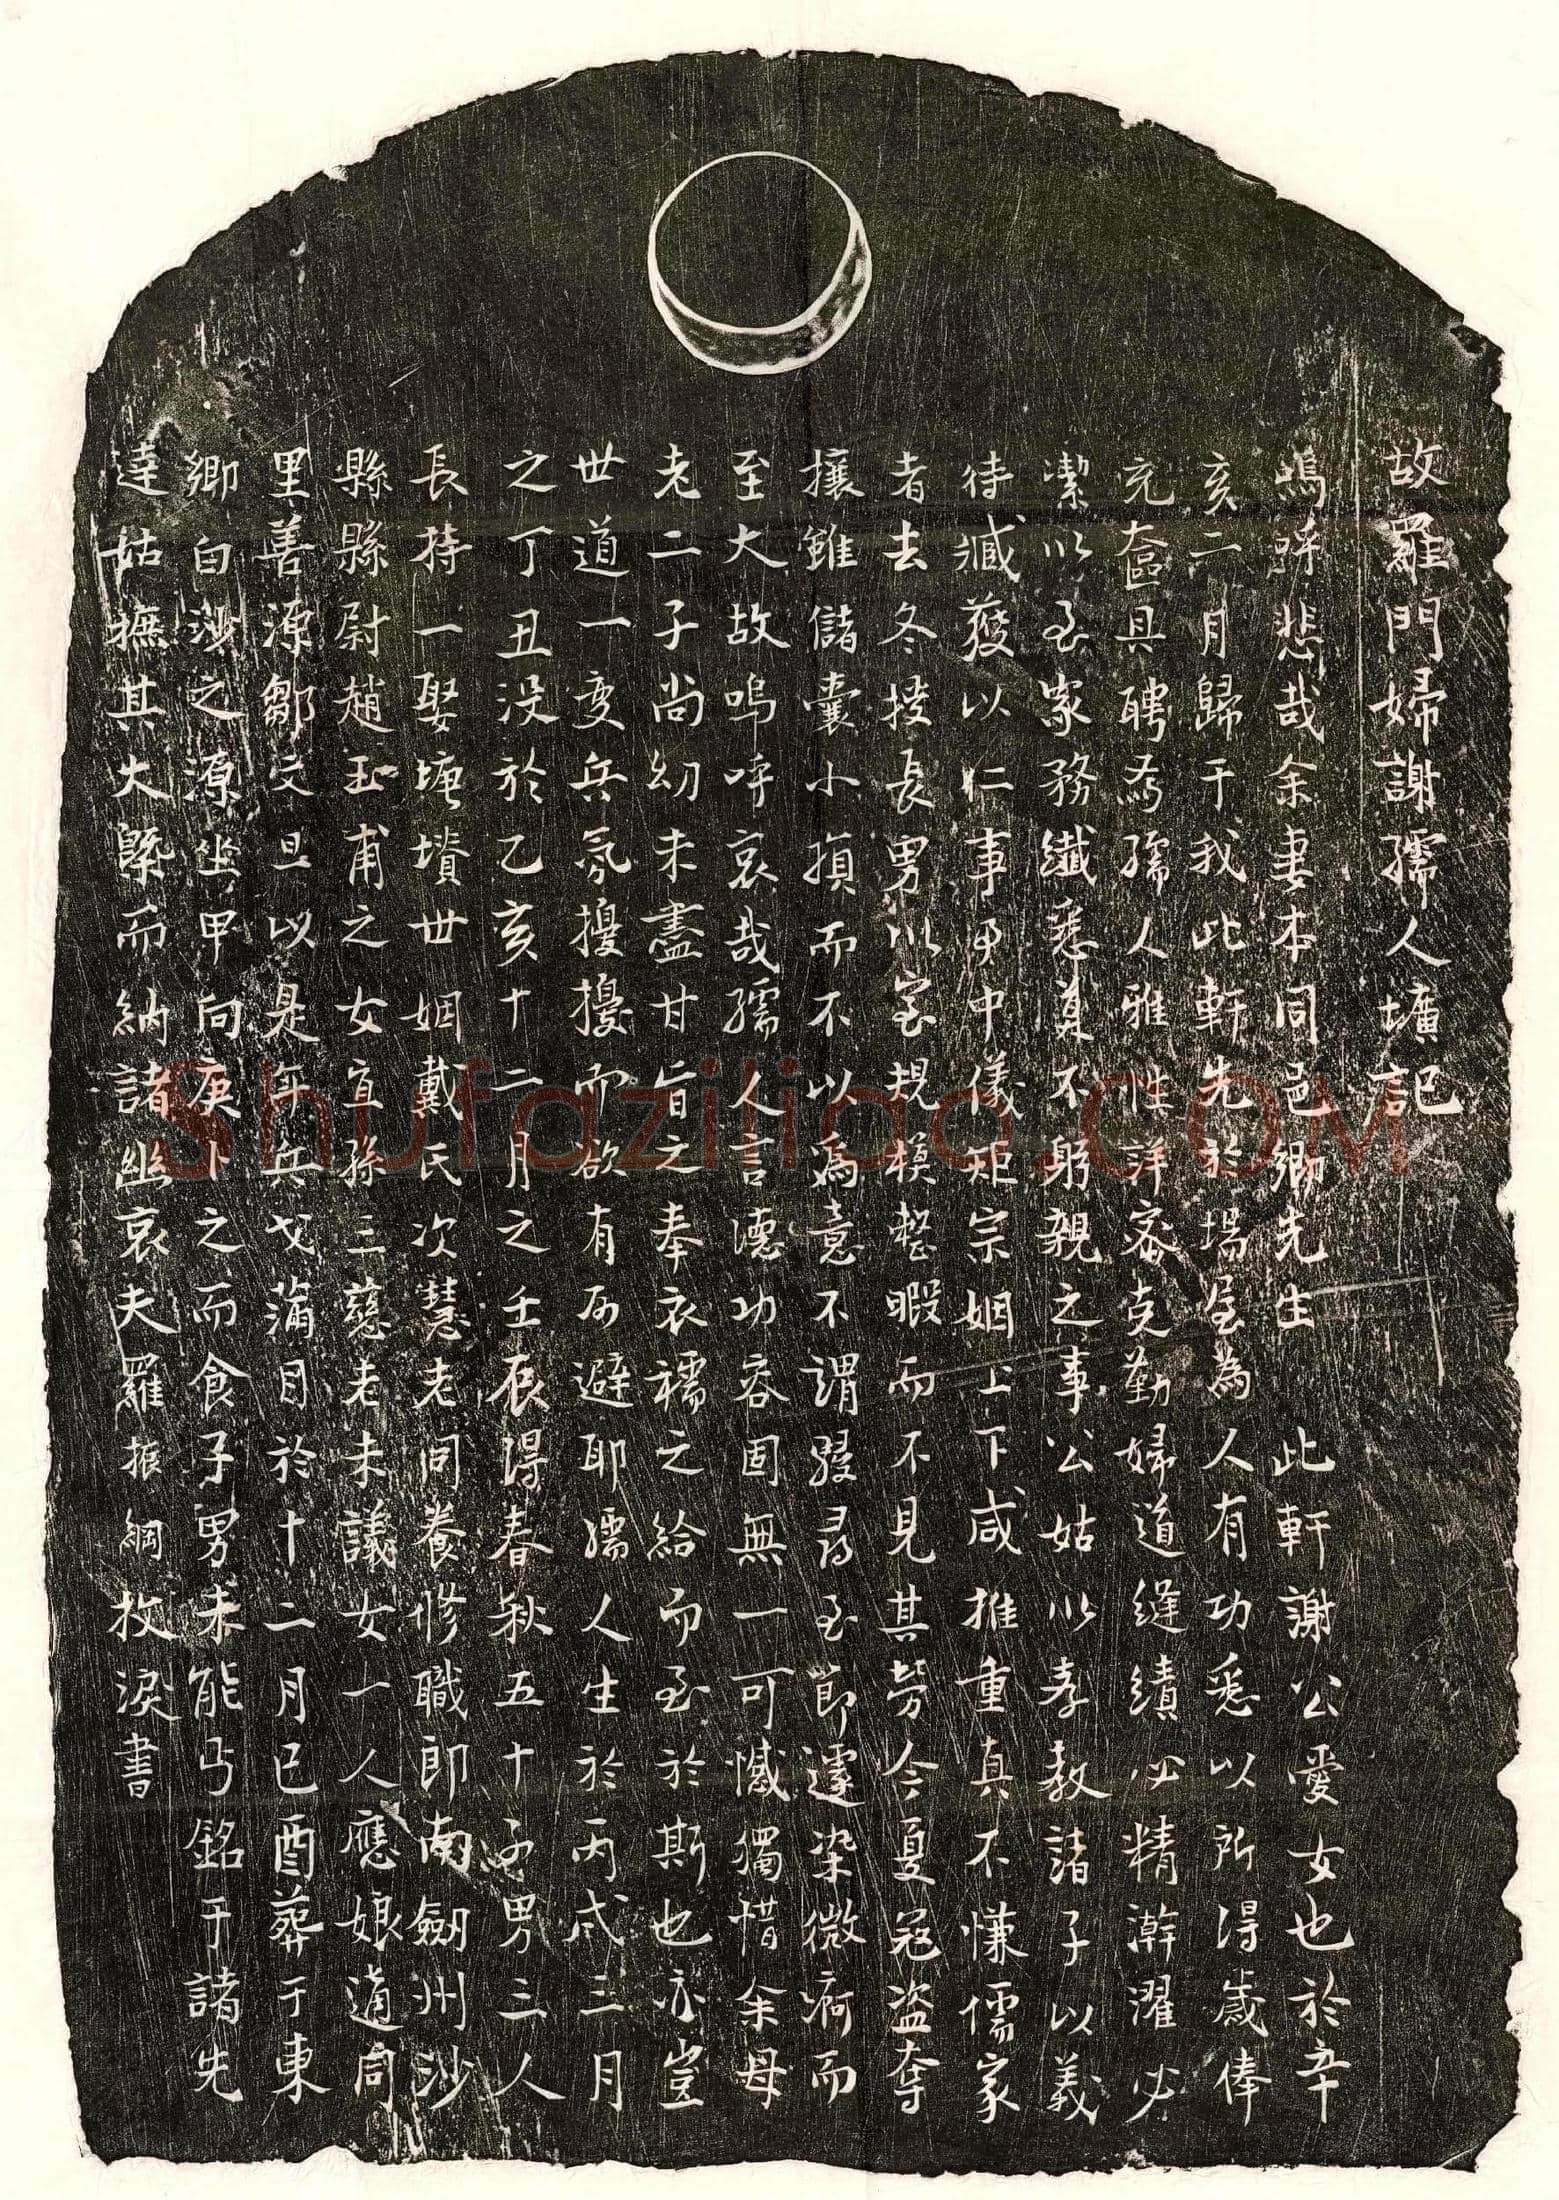 故羅門婦謝孺人壙記
嗚呼悲哉余妻本同邑鄉先生 此軒謝公愛女也於辛
亥二月歸于我此軒先於場屋為人有功悉以所得歲俸
充奩具聘為孺人雅性詳密克勤婦道縫績必精澣濯必
潔以至家務纖悉莫不躬親之事公姑以孝教諸子以義
待臧獲以仁事中儀矩宗姻上下咸推重真不慊儒家
者去冬授長男以室規模整暇而不見其勞今夏寇盜夺
攘雖儲囊小損而不以為意不謂掇尋至節遽染微痾而
至大故嗚呼哀哉孺人言德功容固無一可憾獨惜余母
老二子尚幼未盡甘旨之奉衣襦之給而至於斯也亦豈
世道一变兵氛擾擾而欲有所避耶孺人生於丙戌三月
之丁丑没於乙亥十二月之壬辰得春秋五十子男三人
長持一娶塘墳世姻戴氏次慧老同養修職郎南劒州沙
縣縣尉趙玉甫之女宜孫三慈老未議女一人應娘適同
里善源鄒文旦以是年兵戈滿目於十二月己酉葬于東
鄉白沙之源坐甲向庚卜之而食子男未能丐銘于諸先
達姑摭其大槩而納諸幽哀夫羅振綱抆淚書
Shufaziliao.COM